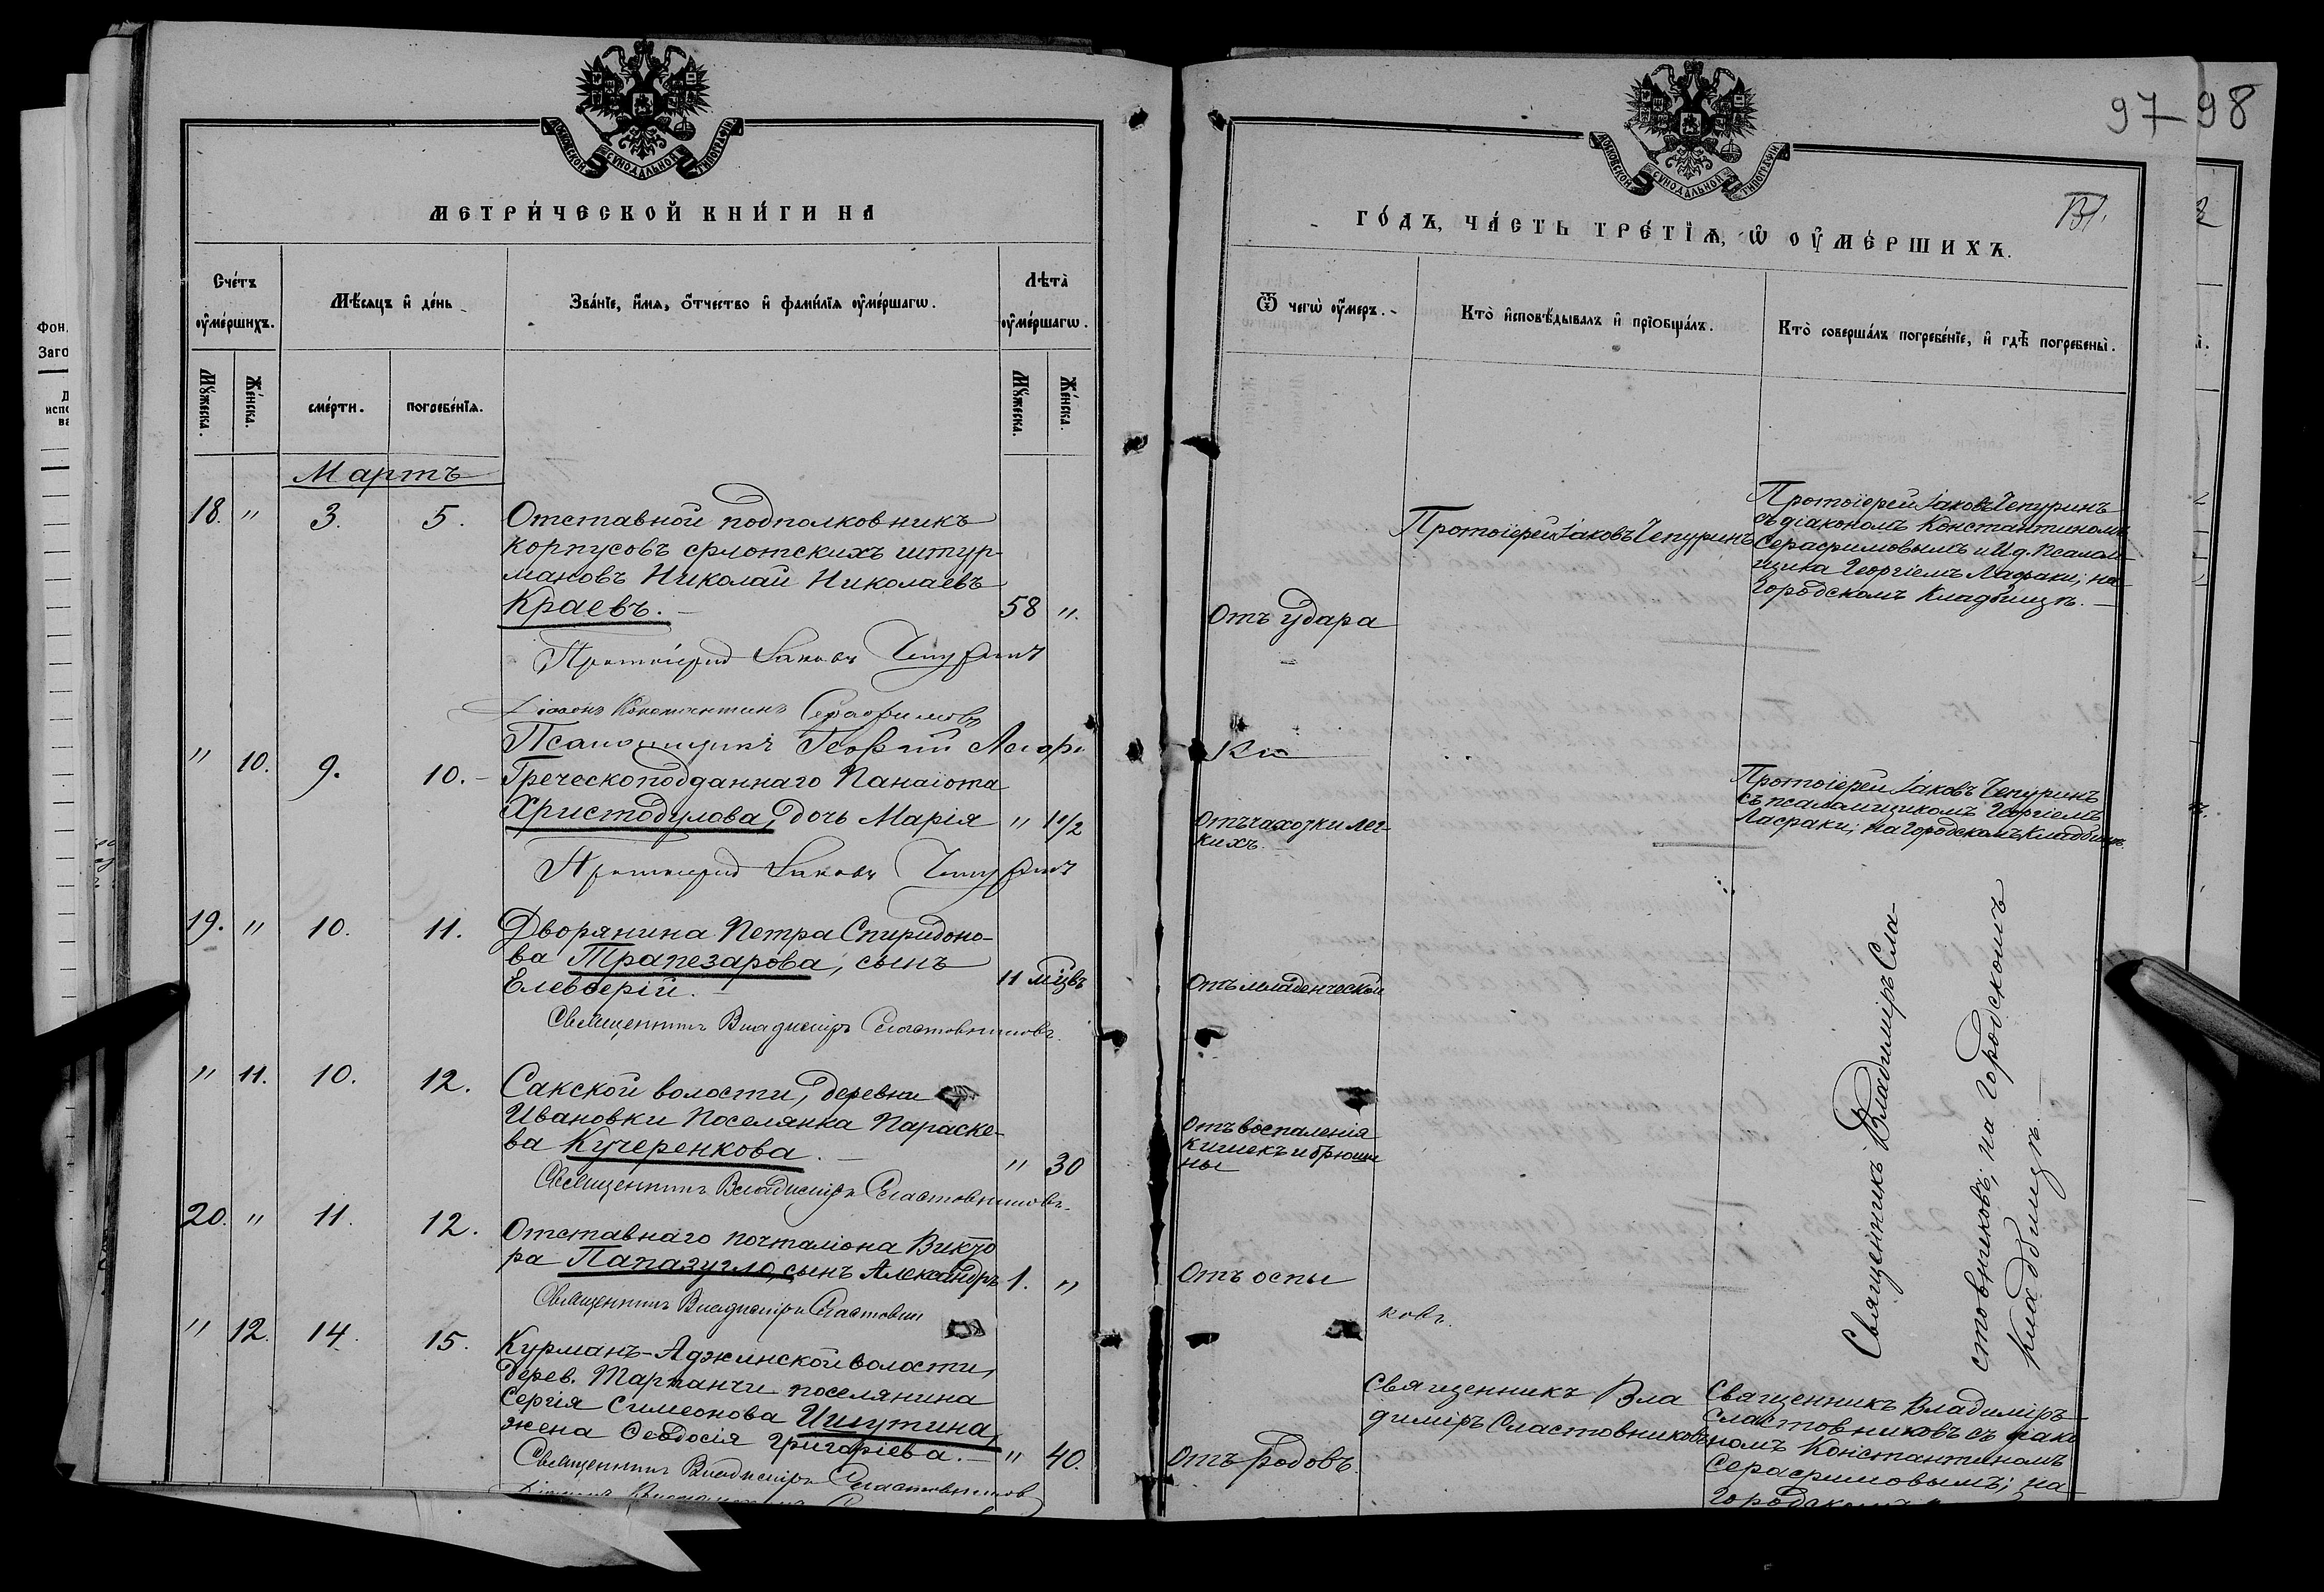 МОСКОВСКОЙ СѴНОДАЛЬНОЙ ТИПОГРАФІИ
МЕТРИ́ЧЕСКОЙ КНИ́ГИ НА
Сче́тъ оу҆ме́ршихъ.
Мѣ́сяцъ и҆ де́нь
Зва́нїе, и҆́мѧ, ѻ҆́тчество и҆ фами́лїѧ оу҆ме́ршагѡ.
Лѣ́та̀ оу҆ме́ршагѡ.
Мꙋ́жеска.
Же́нска.
сме́рти.
погребе́нїѧ.
Мꙋ́жеска.
Же́нска.
Мартъ
18. " 3. 5. Отставной подполковникъ
корпусовъ флотскихъ штур-
мановъ Николай Николаевъ
Краевъ. 58 ".
Протоіерей Іаковъ Чепуринъ
Діаконъ Константинъ Серафимовъ
Псаломщикъ Георгій Лафа
ки
" 10. 9. 10. Греческоподданнаго Панаіота
Христодулова, дочь Марія " 1½
Протоіерей Іаковъ Чепуринъ
19. " 10. 11. Дворянина Петра Спиридоно-
ва Трапезарова, сынъ
Елевѳерій. 11 мѣцвъ
Священникъ Владиміръ Сластовниковъ.
" 11. 10. 12. Сакской волости, деревни
Ивановки поселянка Параске-
ва Кучеренкова. " 30
Священникъ Владиміръ Сластовниковъ.
20. " 11. 12. Отставнаго почталіона Викто
ра Папазугло, сынъ Александръ 1. "
Священникъ Владиміръ Сластовни
ковъ.
" 12. 14. 15. Курманъ-Аджинской волости,
дерев. поселянина
Сергія Симеонова Ишутина,
жена Ѳеодосія Григоріева. " 40.
Священникъ Владиміръ Сластовников
97 98
МОСКОВСКОЙ СѴНОДАЛЬНОЙ ТИПОГРАФІИ
ГО́ДЪ, ЧА́СТЬ ТРЕ́ТЇѦ, Ѡ҆ ОУ҆МЕ́РШИХЪ.
Ѿ чегѡ̀ оу҆́меръ.
Кто̀ и҆сповѣ́дывалъ и҆ прїѻбща́лъ.
Кто̀ соверша́лъ погребе́нїе, и҆ гдѣ̀ погребены̀.
Отъ удара
Протоіерей Іаковъ Чепуринъ
Протоіерей Іаковъ Чепуринъ
съ діакономъ Константиномъ
Серафимовымъ и И. д. Псалом
щика Георгіемъ Лафаки; на
Городскомъ Кладбищѣ.
Отъ чахотки лег-
кихъ.
Протоіерей Іаковъ Чепуринъ
съ псаломщикомъ Георгіемъ
Лафраки; на Городскомъ Кладбищѣ.
Отъ младенческой
Отъ воспаленія
кишекъ и брюши
ны
Отъ оспы
Священникъ Владиміръ Сла-
стовниковъ; на Городскомъ
Кладбищѣ.
Отъ родовъ.
Священникъ Вла
диміръ Сластовниковъ
Священникъ Владиміръ
Сластовниковъ съ діако
номъ Константиномъ
Серафимовымъ; на